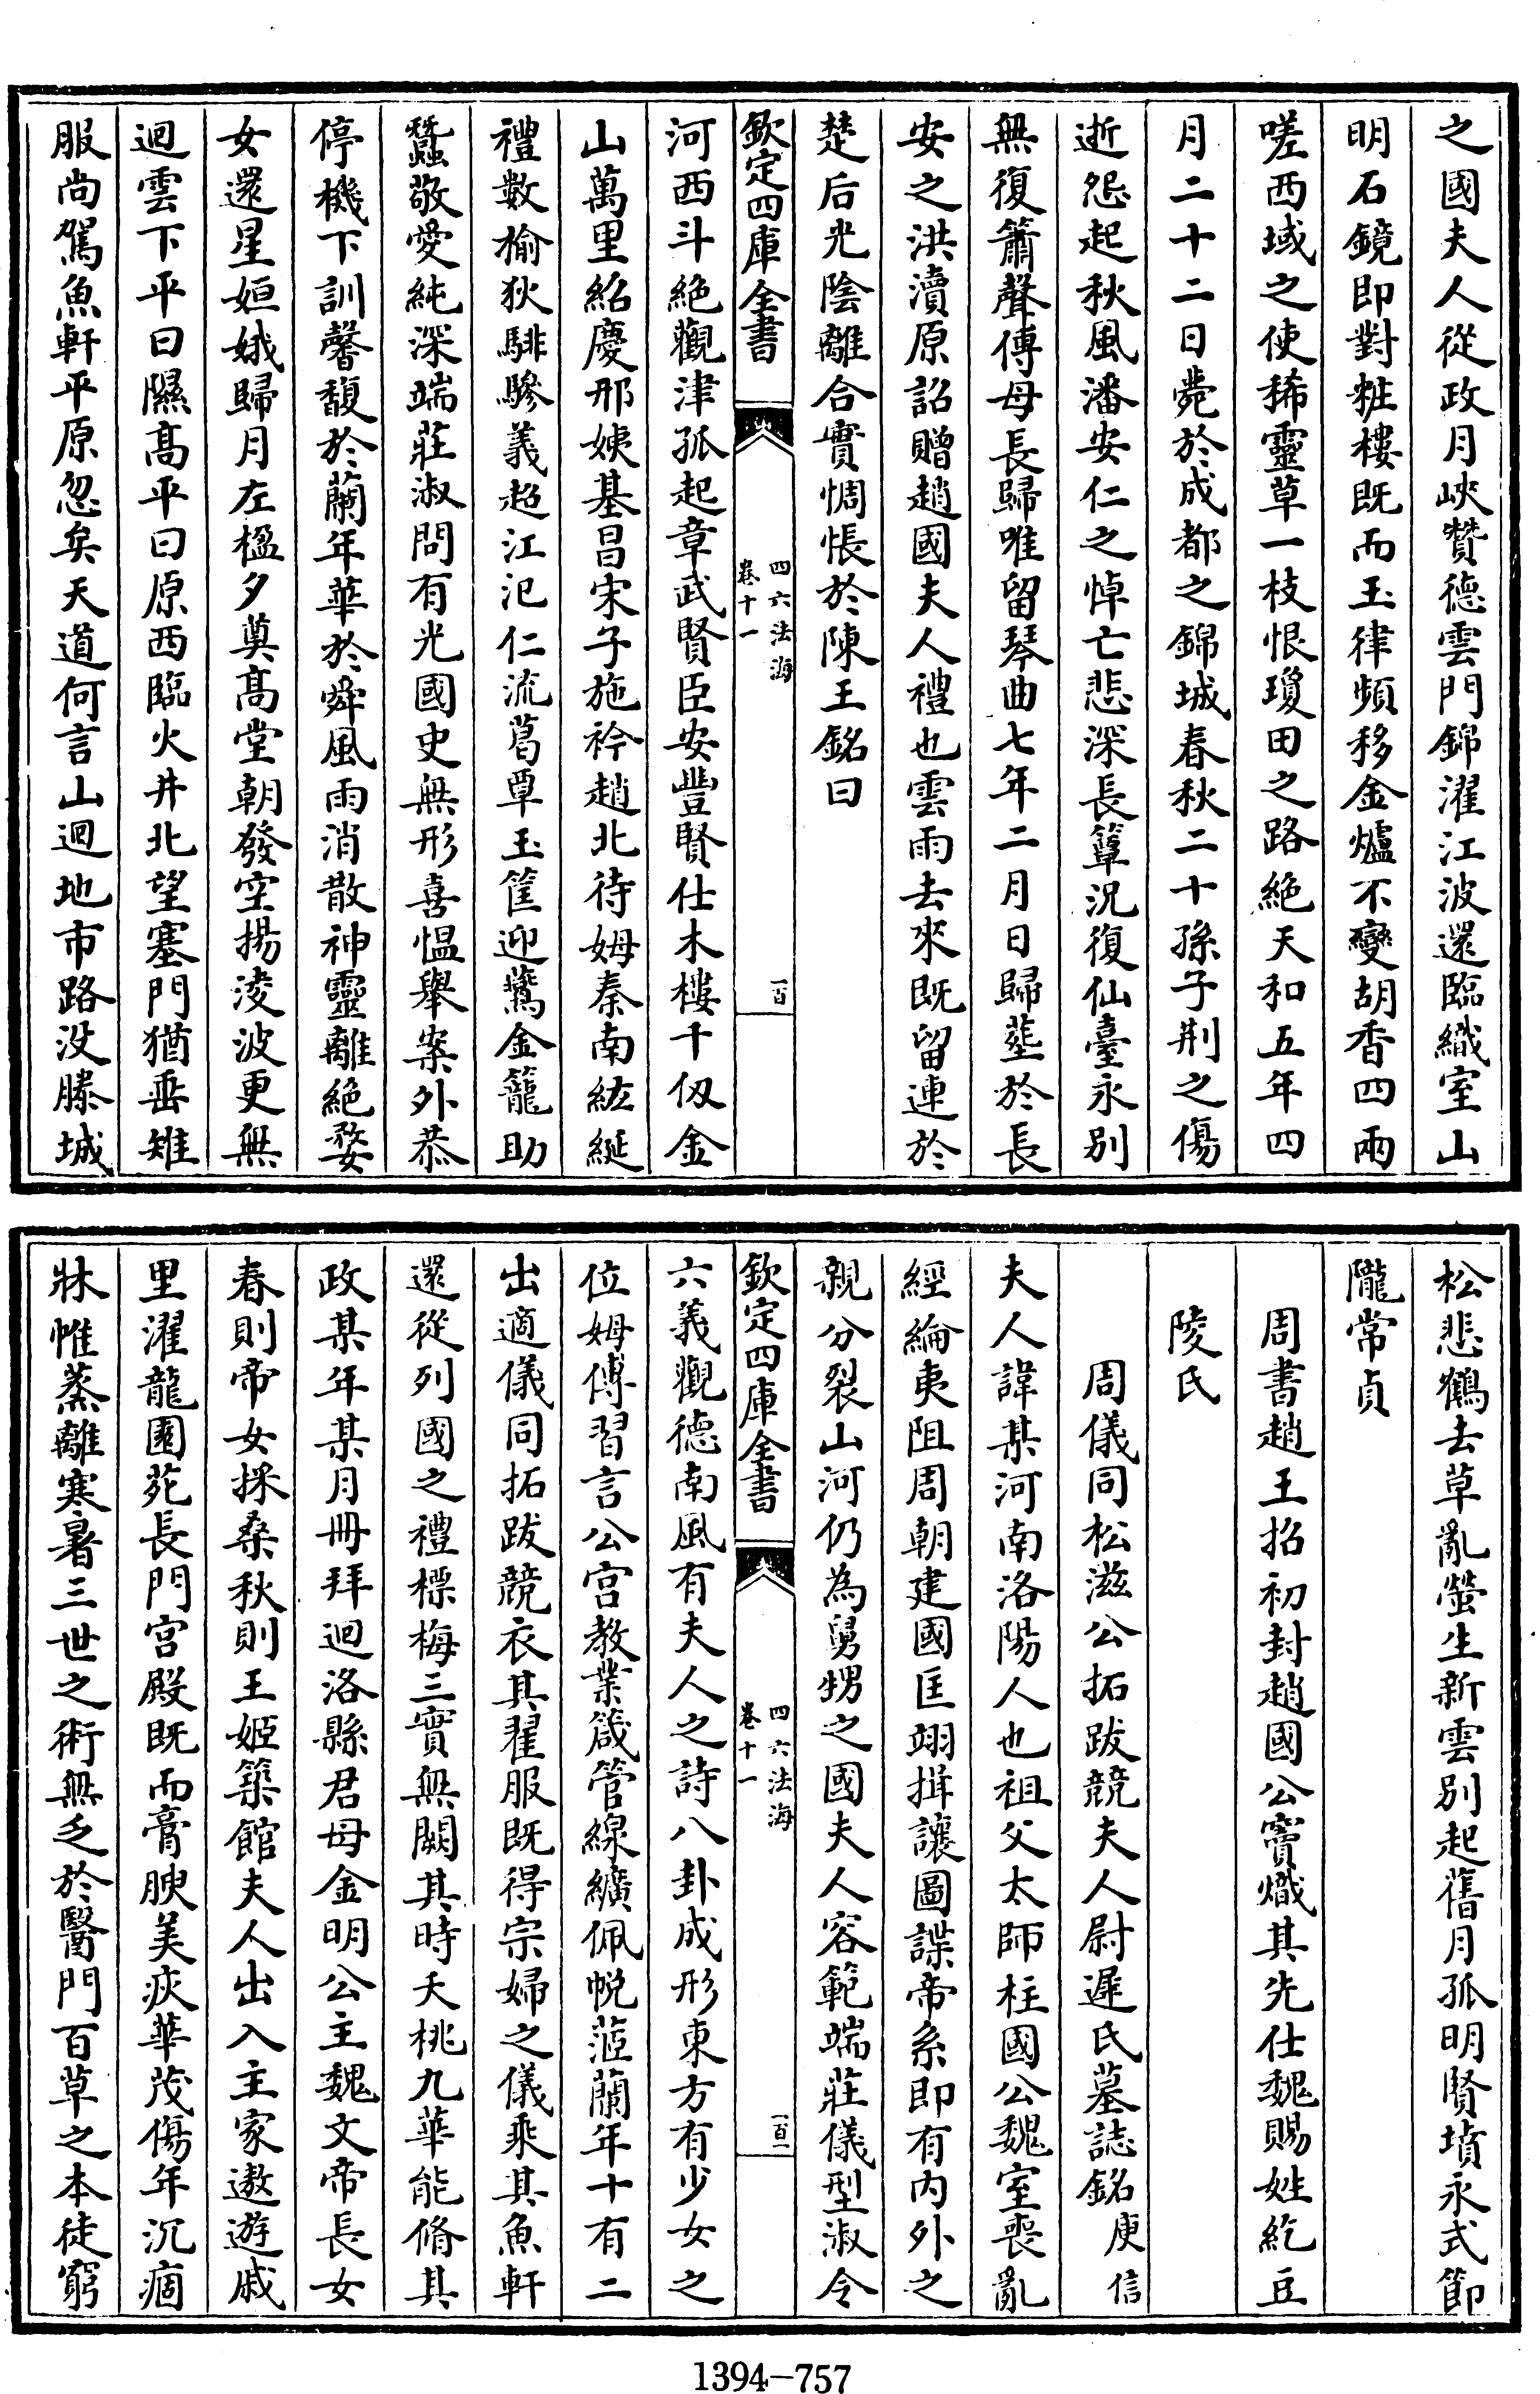 之國夫人從政月峽贊德雲門錦濯江波還臨織室山
明石鏡即對粧樓既而玉律頻移金爐不變胡香四兩
嗟西域之使稀靈草一枝恨瓊田之路絶天和五年四
月二十二日薨於成都之錦城春秋二十孫子荆之傷
逝怨起秋風潘安仁之悼亡悲深長簟況復仙臺永别
無復簫聲傅母長歸唯留琴曲七年二月日歸塟於長
安之洪瀆原詔贈趙國夫人禮也雲雨去來既留連於
楚后光陰離合實惆悵於陳王銘曰
欽定四庫全書
四六法海
卷十一
一百
河西斗絶觀津孤起章武賢臣安豐賢仕木樓千仭金
山萬里紹慶邢姨基昌宋子施衿趙北待姆秦南紘綖
禮數褕狄騑驂義超江汜仁流葛覃玉筐迎鷩金籠助
蠶敬愛純深端莊淑問有光國史無形喜愠舉案外恭
停機下訓馨馥於蘭年華於舜風雨消散神靈離絶婺
女還星姮娥歸月左楹夕奠髙堂朝發空揚淩波更無
迴雲下平曰隰髙平曰原西臨火井北望塞門猶乗雉
服尚駕魚軒平原忽矣天道何言山迴地市路没滕城
松悲鶴去草亂螢生新雲别起舊月孤明賢墳永式節
隴常貞
周書趙王招初封趙國公竇熾其先仕魏賜姓紇豆
陵氏
周儀同松滋公拓跋競夫人尉遲氏墓誌銘 庾信
夫人諱某河南洛陽人也祖父太師柱國公魏室喪亂
經綸夷阻周朝建國匡翊揖讓圖諜帝系即有内外之
親分裂山河仍為舅甥之國夫人容範端莊儀型淑令
欽定四庫全書
四六法海
卷十一
一百一
六義觀德南風有夫人之詩八卦成形東方有少女之
位姆傅習言公宫教業箴管線纊佩帨茝蘭年十有二
出適儀同拓跋競衣其翟服既得宗婦之儀乘其魚軒
還從列國之禮標梅三實無闕其時夭桃九華能脩其
政某年某月冊拜迴洛縣君母金明公主魏文帝長女
春則帝女採桑秋則王姬築館夫人出入主家遨遊戚
里濯龍園苑長門宫殿既而膏腴美疢華茂傷年沉痼
牀帷蒸離寒暑三世之術無乏於醫門百草之本徒窮
1394-757